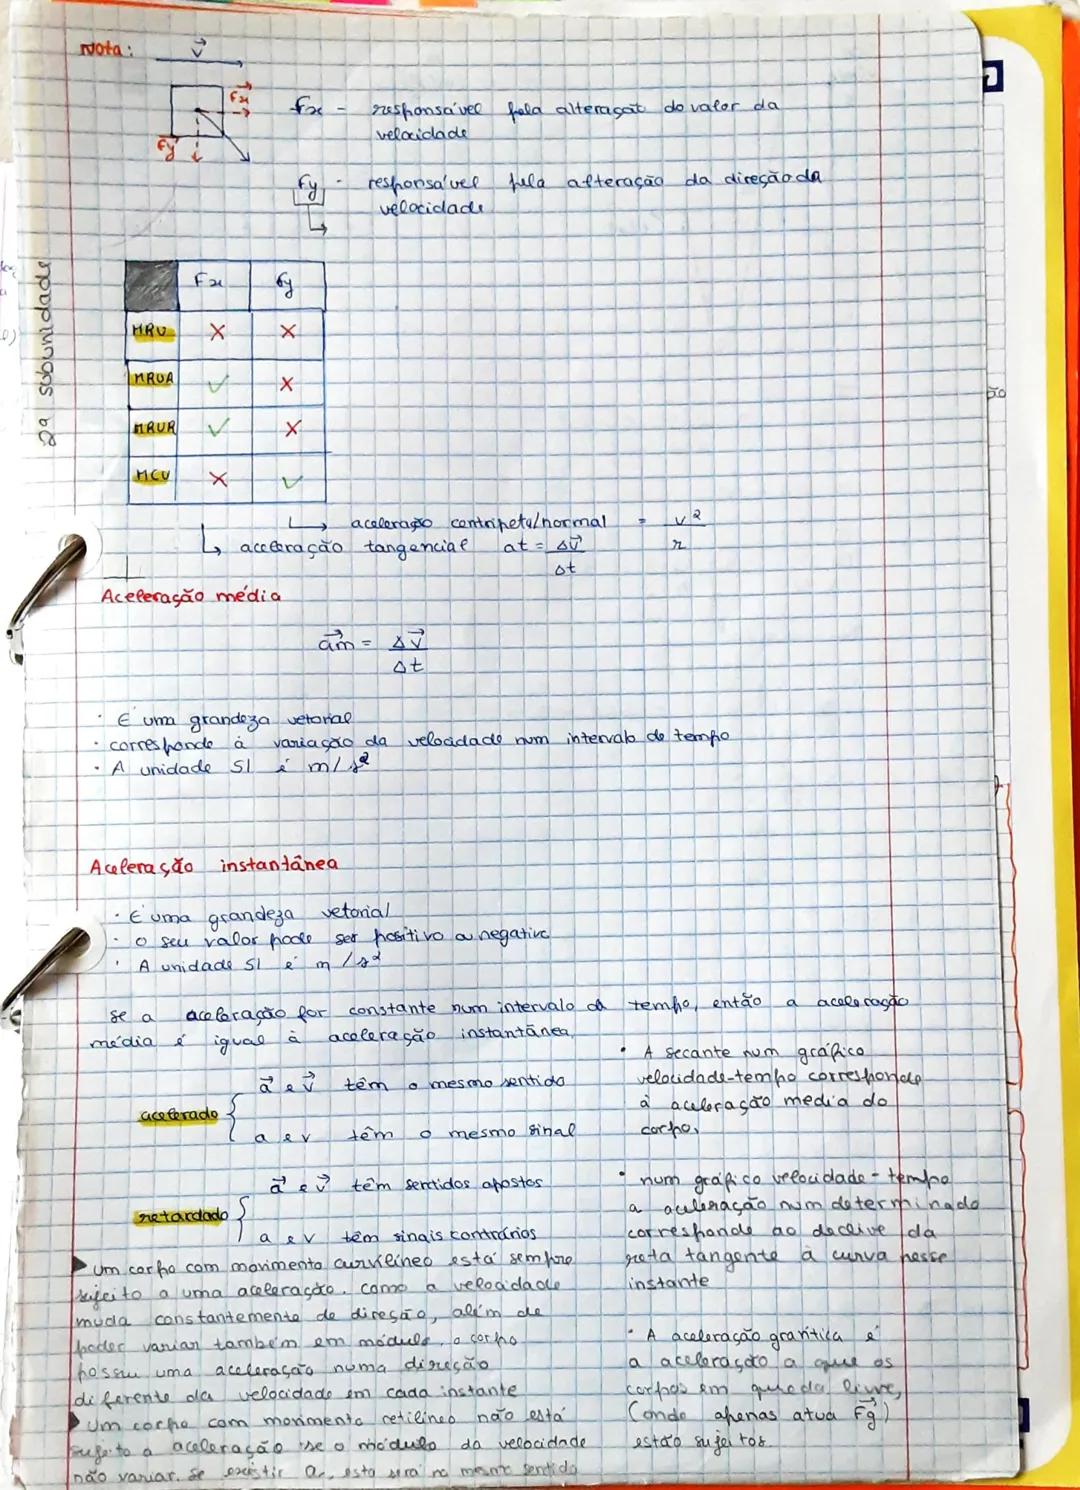 Nota:
v
Fx
Fy
Fx - responsável pela alteração do valor da
velocidade
Fy - responsável pela alteração da direção da
velocidade
2ª subunidade
Fx Fy
MRU X X
MRUA ✓ X
MRUR ✓ X
MCU X ✓
aceleração centripeta/normal = v²/r
aceleração tangencial at = Δv/Δt
Aceleração média
am = Δv/Δt
· É uma grandeza vetorial
· corresponde à variação da velocidade num intervalo de tempo
· A unidade SI é m/s²
Aceleração instantânea
· É uma grandeza vetorial
· O seu valor pode ser positivo ou negativo
· A unidade SI é m/s²
Se a aceleração for constante num intervalo de tempo, então a aceleração
média é igual à aceleração instantânea.
acelerado
a e v têm o mesmo sentido
a e v têm o mesmo sinal
retardado
a e v têm sentidos opostos
a e v têm sinais contrários
Um corpo com movimento curvilíneo está sempre
sujeito a uma aceleração. como a velocidade
muda constantemente de direção, além de
poder variar também em módulo, o corpo
possui uma aceleração numa direção
diferente da velocidade em cada instante
Um corpo com movimento retilíneo não está
sujeito a aceleração se o módulo da velocidade
não variar. Se existir a, esta será no mesmo sentido
· A secante num gráfico
velocidade-tempo corresponde
à aceleração média do
corpo.
· num gráfico velocidade-tempo
a aceleração num determinado
corresponde ao declive da
reta tangente à curva nesse
instante
· A aceleração gravítica é
a aceleração a que os
corpos em queda livre,
(onde apenas atua Fg)
estão sujeitos.